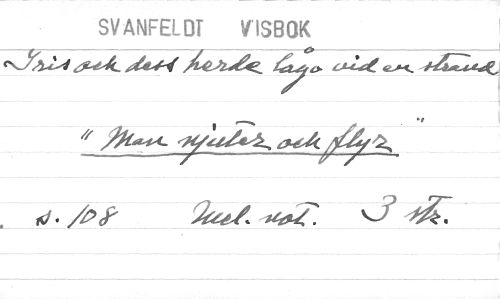 SVANFELDT VISBOK
Iris och dess herde lågo vid en strand
"Man njuter och flyr"
s. 108 Mel. not. 3 str.